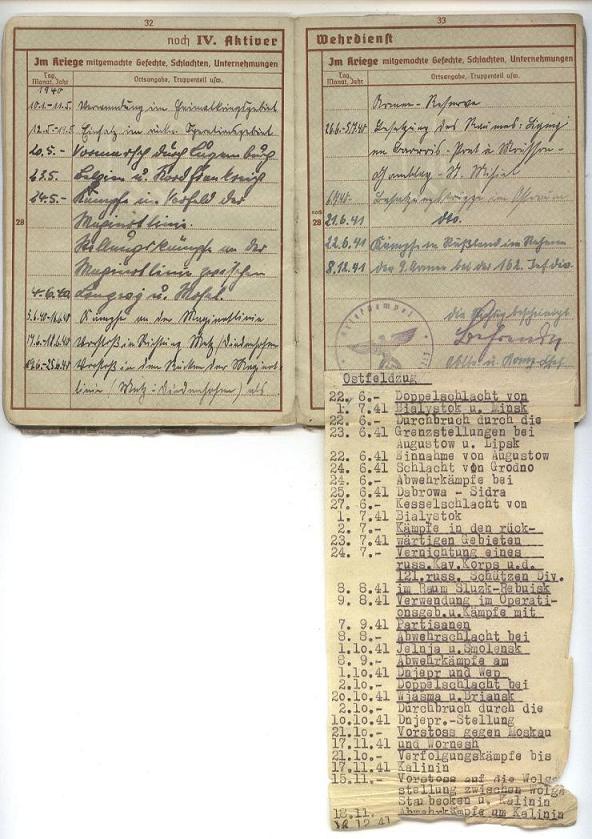 32
noch IV. Aktiver
Im Kriege mitgemachte Gefechte, Schlachten, Unternehmungen
Tag, Monat, Jahr
Ortsangabe, Truppenteil usw.
1940
10.1.-11.5. Verwendung im Heimatkriegsgebiet
Einsatz im Operationsgebiet
20.5.- Vormarsch durch Luxemburg
23.5. Belgien u. Nordfrankreich
24.5.- Kämpfe im Vorfeld der
Maginotlinie.
28
Stellungskämpfe an der
Maginotlinie zwischen
4.6.40 Longwy u. Mosel.
5.6.40- Kämpfe an der Maginotlinie
Vorstoß in Richtung Metz/Diedenhofen
Vorstoß in den Rücken der Maginot
linie (Metz-Diedenhofen) als
33
Wehrdienst
Im Kriege mitgemachte Gefechte, Schlachten, Unternehmungen
Tag, Monat, Jahr
Ortsangabe, Truppenteil usw.
Armee-Reserve
26.6.-5.7.40 Besetzung des Raumes:
St. Mihiel
noch 28
21.6.41 dto.
22.6.41 Kämpfe in Rußland im Rahmen
8.12.41 der 9. Armee bei der 162. Inf. Div.
Ostfeldzug
22. 6.- Doppelschlacht von
1. 7.41 Bialystok u. Minsk
22. 6.- Durchbruch durch die
23. 6.41 Grenzstellungen bei
Augustow u. Lipsk
22. 6.41 Einnahme von Augustow
24. 6.41 Schlacht von Grodno
24. 6.- Abwehrkämpfe bei
25. 6.41 Dabrowa - Sidra
27. 6.- Kesselschlacht von
1. 7.41 Bialystok
2. 7.- Kämpfe in den rück-
23. 7.41 wärtigen Gebieten
24. 7.- Vernichtung eines
russ.Kav.Korps u.d.
121.russ. Schützen Div.
8. 8.41 im Raum Sluzk-Rebuisk
9. 8.41 Verwendung im Operati-
onsgeb.u.Kämpfe mit
7. 9.41 Partisanen
8. 8.- Abwehrschlacht bei
1.10.41 Jelnja u.Smolensk
8. 9.- Abwehrkämpfe am
1.10.41 Dnjepr und Wep
2.10.- Doppelschlacht bei
20.10.41 Wjasma u.Briansk
2.10.- Durchbruch durch die
10.10.41 Dnjepr.-Stellung
21.10.- Vorstoss gegen Moskau
17.11.41 und Wornesh
21.10.- Verfolgungskämpfe bis
17.11.41 Kalinin
15.11.- Vorstoss auf die Wolga
stellung zwischen Wolga
Staubecken u. Kalinin
Abwehrkämpfe um Kalinin